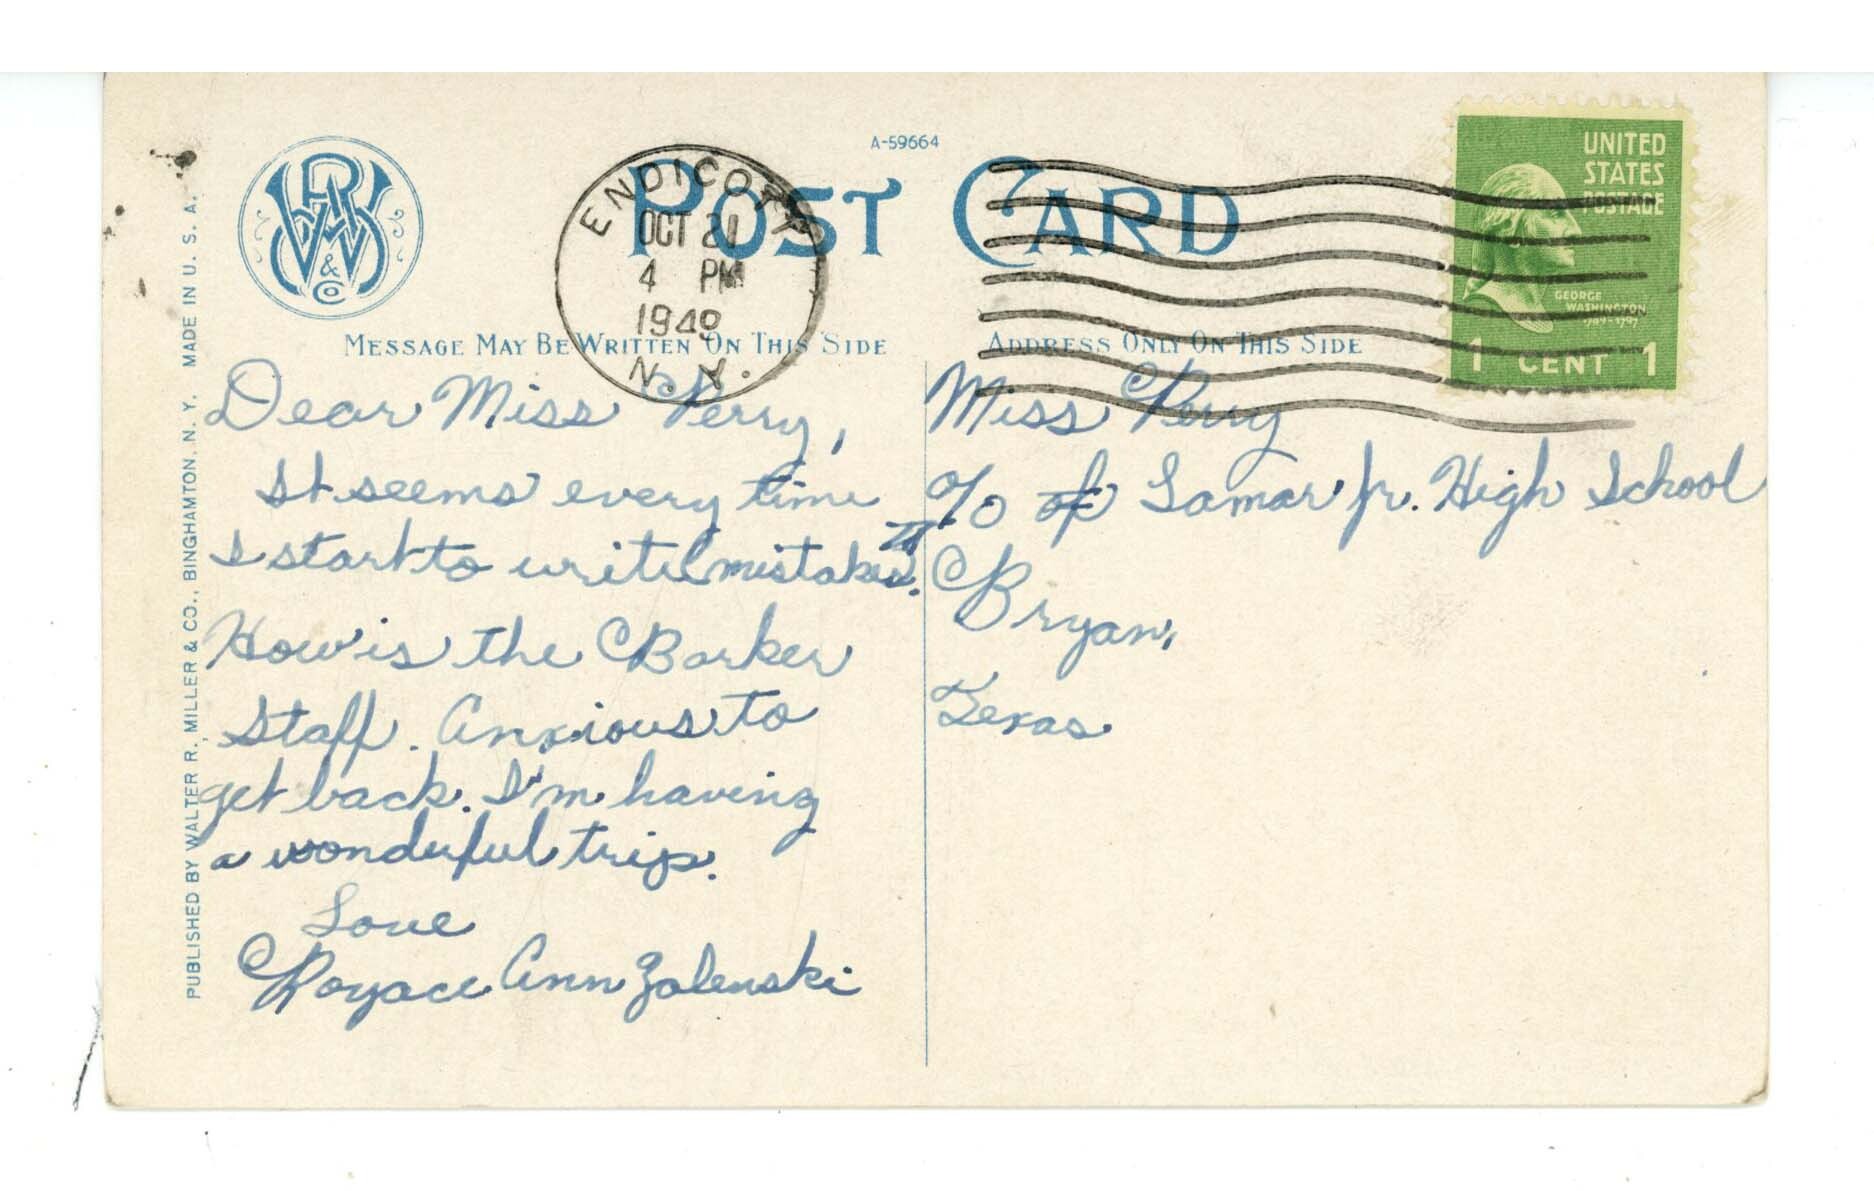 A-59664
POST CARD
WRM & CO
ENDICOTT
OCT 21
4 PM
1949
N. Y.
UNITED
STATES
POSTAGE
GEORGE
WASHINGTON
1 CENT 1
MESSAGE MAY BE WRITTEN ON THIS SIDE
ADDRESS ONLY ON THIS SIDE
PUBLISHED BY WALTER R. MILLER & CO., BINGHAMTON, N. Y. MADE IN U. S. A.
Dear Miss Perry,
It seems every time
I start to write mistakes.
How is the Barker
Staff. Anxious to
get back. I'm having
a wonderful trip.
Love
Royace Ann Zalenski
Miss Perry
c/o of Lamar Jr. High School
Bryan,
Texas.